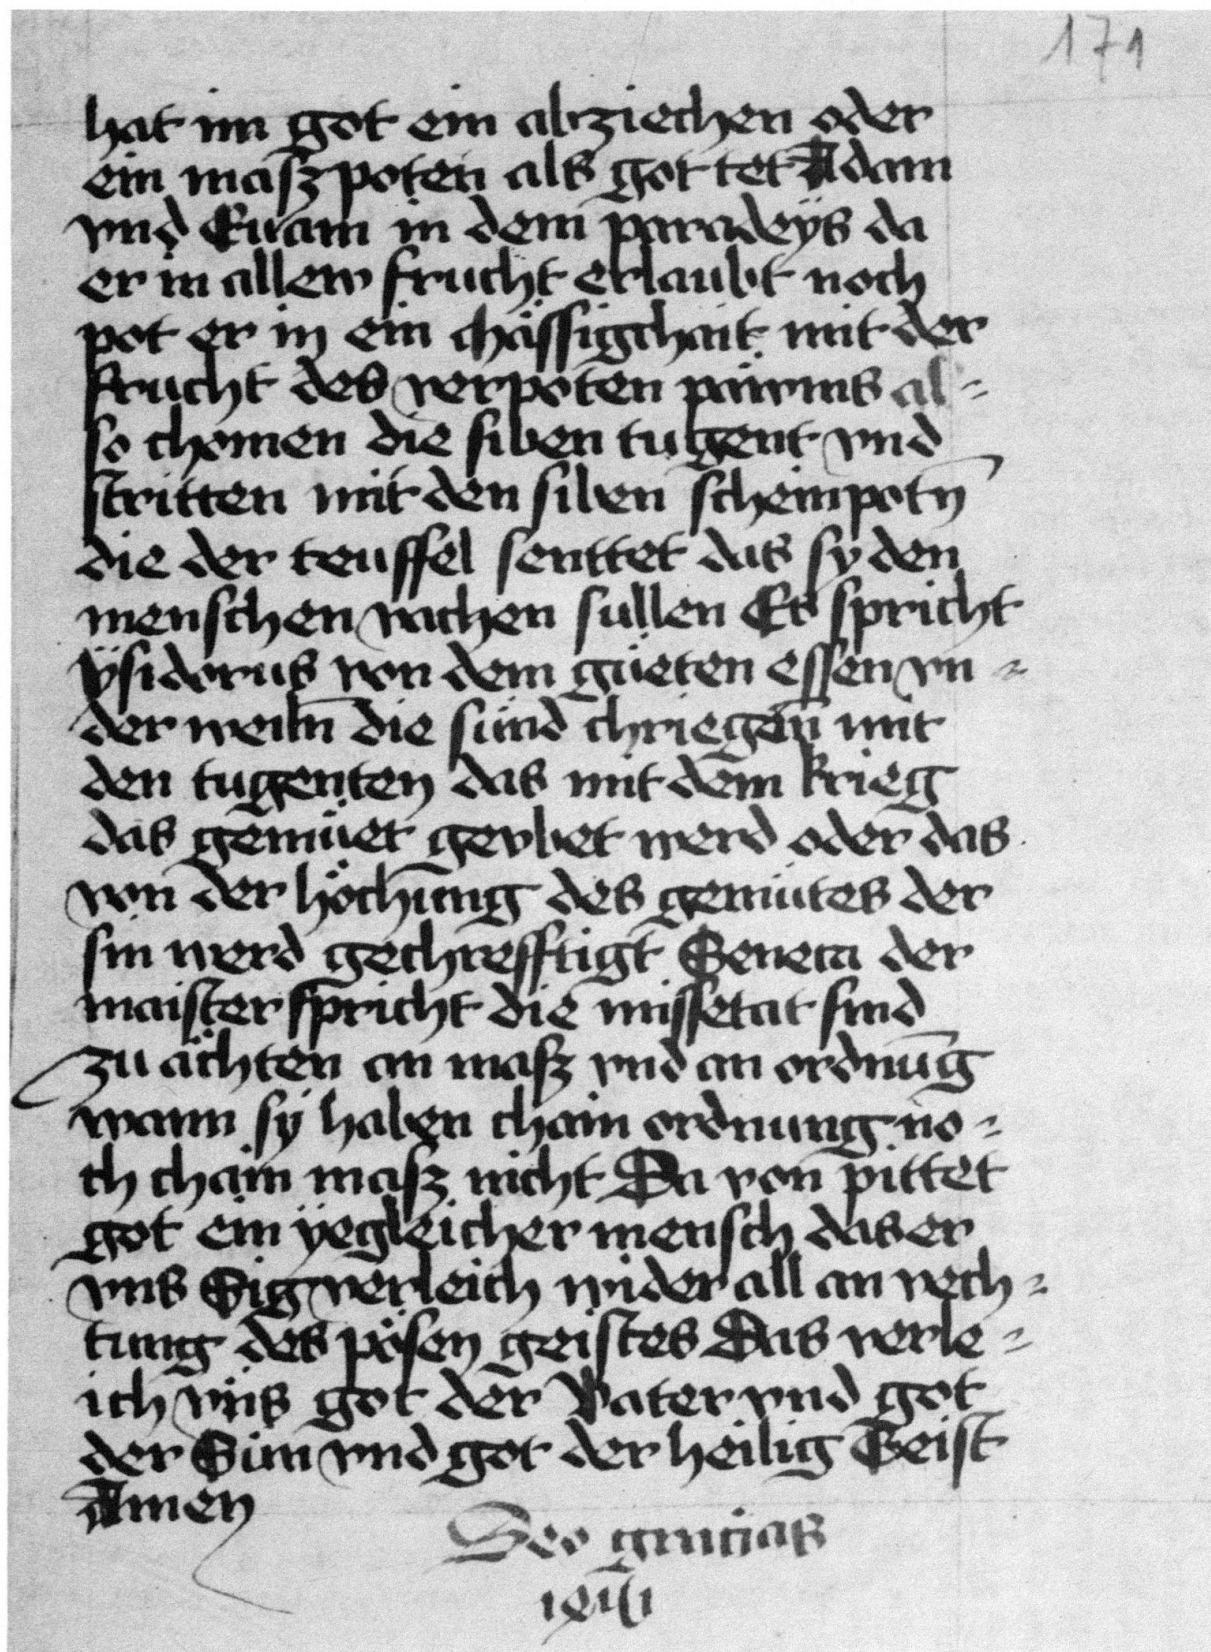 171
hat im got ein abziechen oder
ein masz poten als got tet Adam
vnd Euam in dem paradeÿs da
er in allew frucht erlaubt noch
pot er in ein chässigchait mit der
frucht des verpoten pawms al-
so chomen die siben tugent vnd
stritten mit den siben scheinpotn̄
die der teuffel senttet das sy den
menschen vachen sullen Es spricht
ÿsidorus von dem güeten essen vn-
der weiln̄ die sünd chriegen mit
den tugenten das mit dem krieg
das gemüet gevbet werd oder das
von der höchung des gemütes der
sin werd gechrefftigt Seneca der
maister spricht die missetat sind
zu ächten an masz vnd an ordnūg
wann sÿ haben chain ordnung no-
ch chain masz nicht Da von pittet
got ein ÿegleicher mensch das er
vns Sig verleich wider all an vech-
tung des pösen geistes Das verle-
ich vns got der Vater vnd got
der Sun vnd got der heilig Geist
Amen
Deo gracias